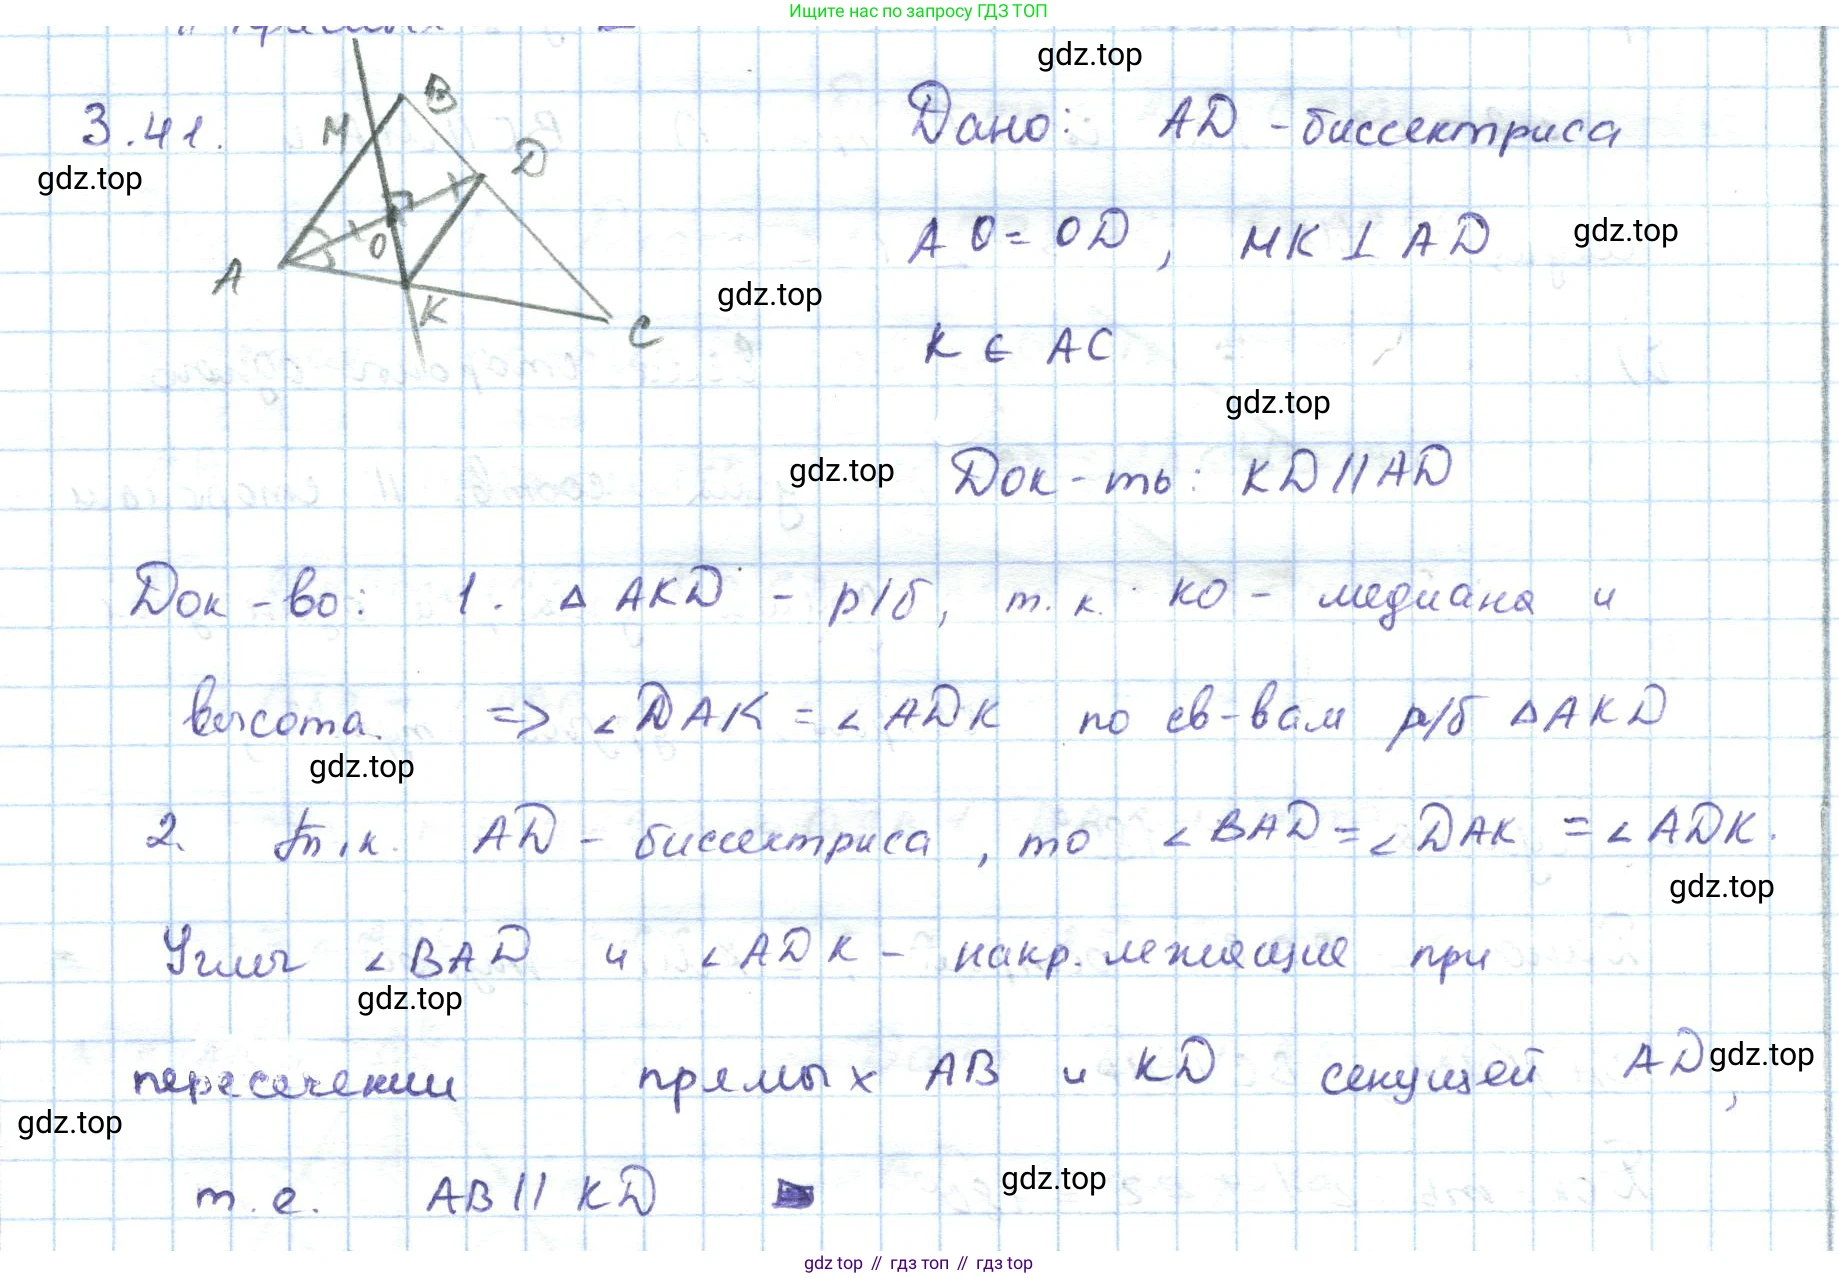 Ищите нас по запросу ГДЗ ТОП
gdz.top
3.41.
M
B
D
O
A
K
C
gdz.top
Дано: AD - биссектриса
AO = OD, MK ⊥ AD
gdz.top
gdz.top
K ∈ AC
gdz.top
gdz.top
Док-ть: KD || AD
Док-во: 1. △ AKD - р/б, т.к. KO - медиана и
высота. => ∠DAK = ∠ADK по св-вам р/б △AKD
gdz.top
2. т.к. AD - биссектриса, то ∠BAD = ∠DAK = ∠ADK.
gdz.top
Углы ∠BAD и ∠ADK - накр. лежащие при
gdz.top
пересечении прямых AB и KD секущей AD,
gdz.top
gdz.top
т.е. AB || KD
gdz.top
gdz top // гдз топ // гдз top